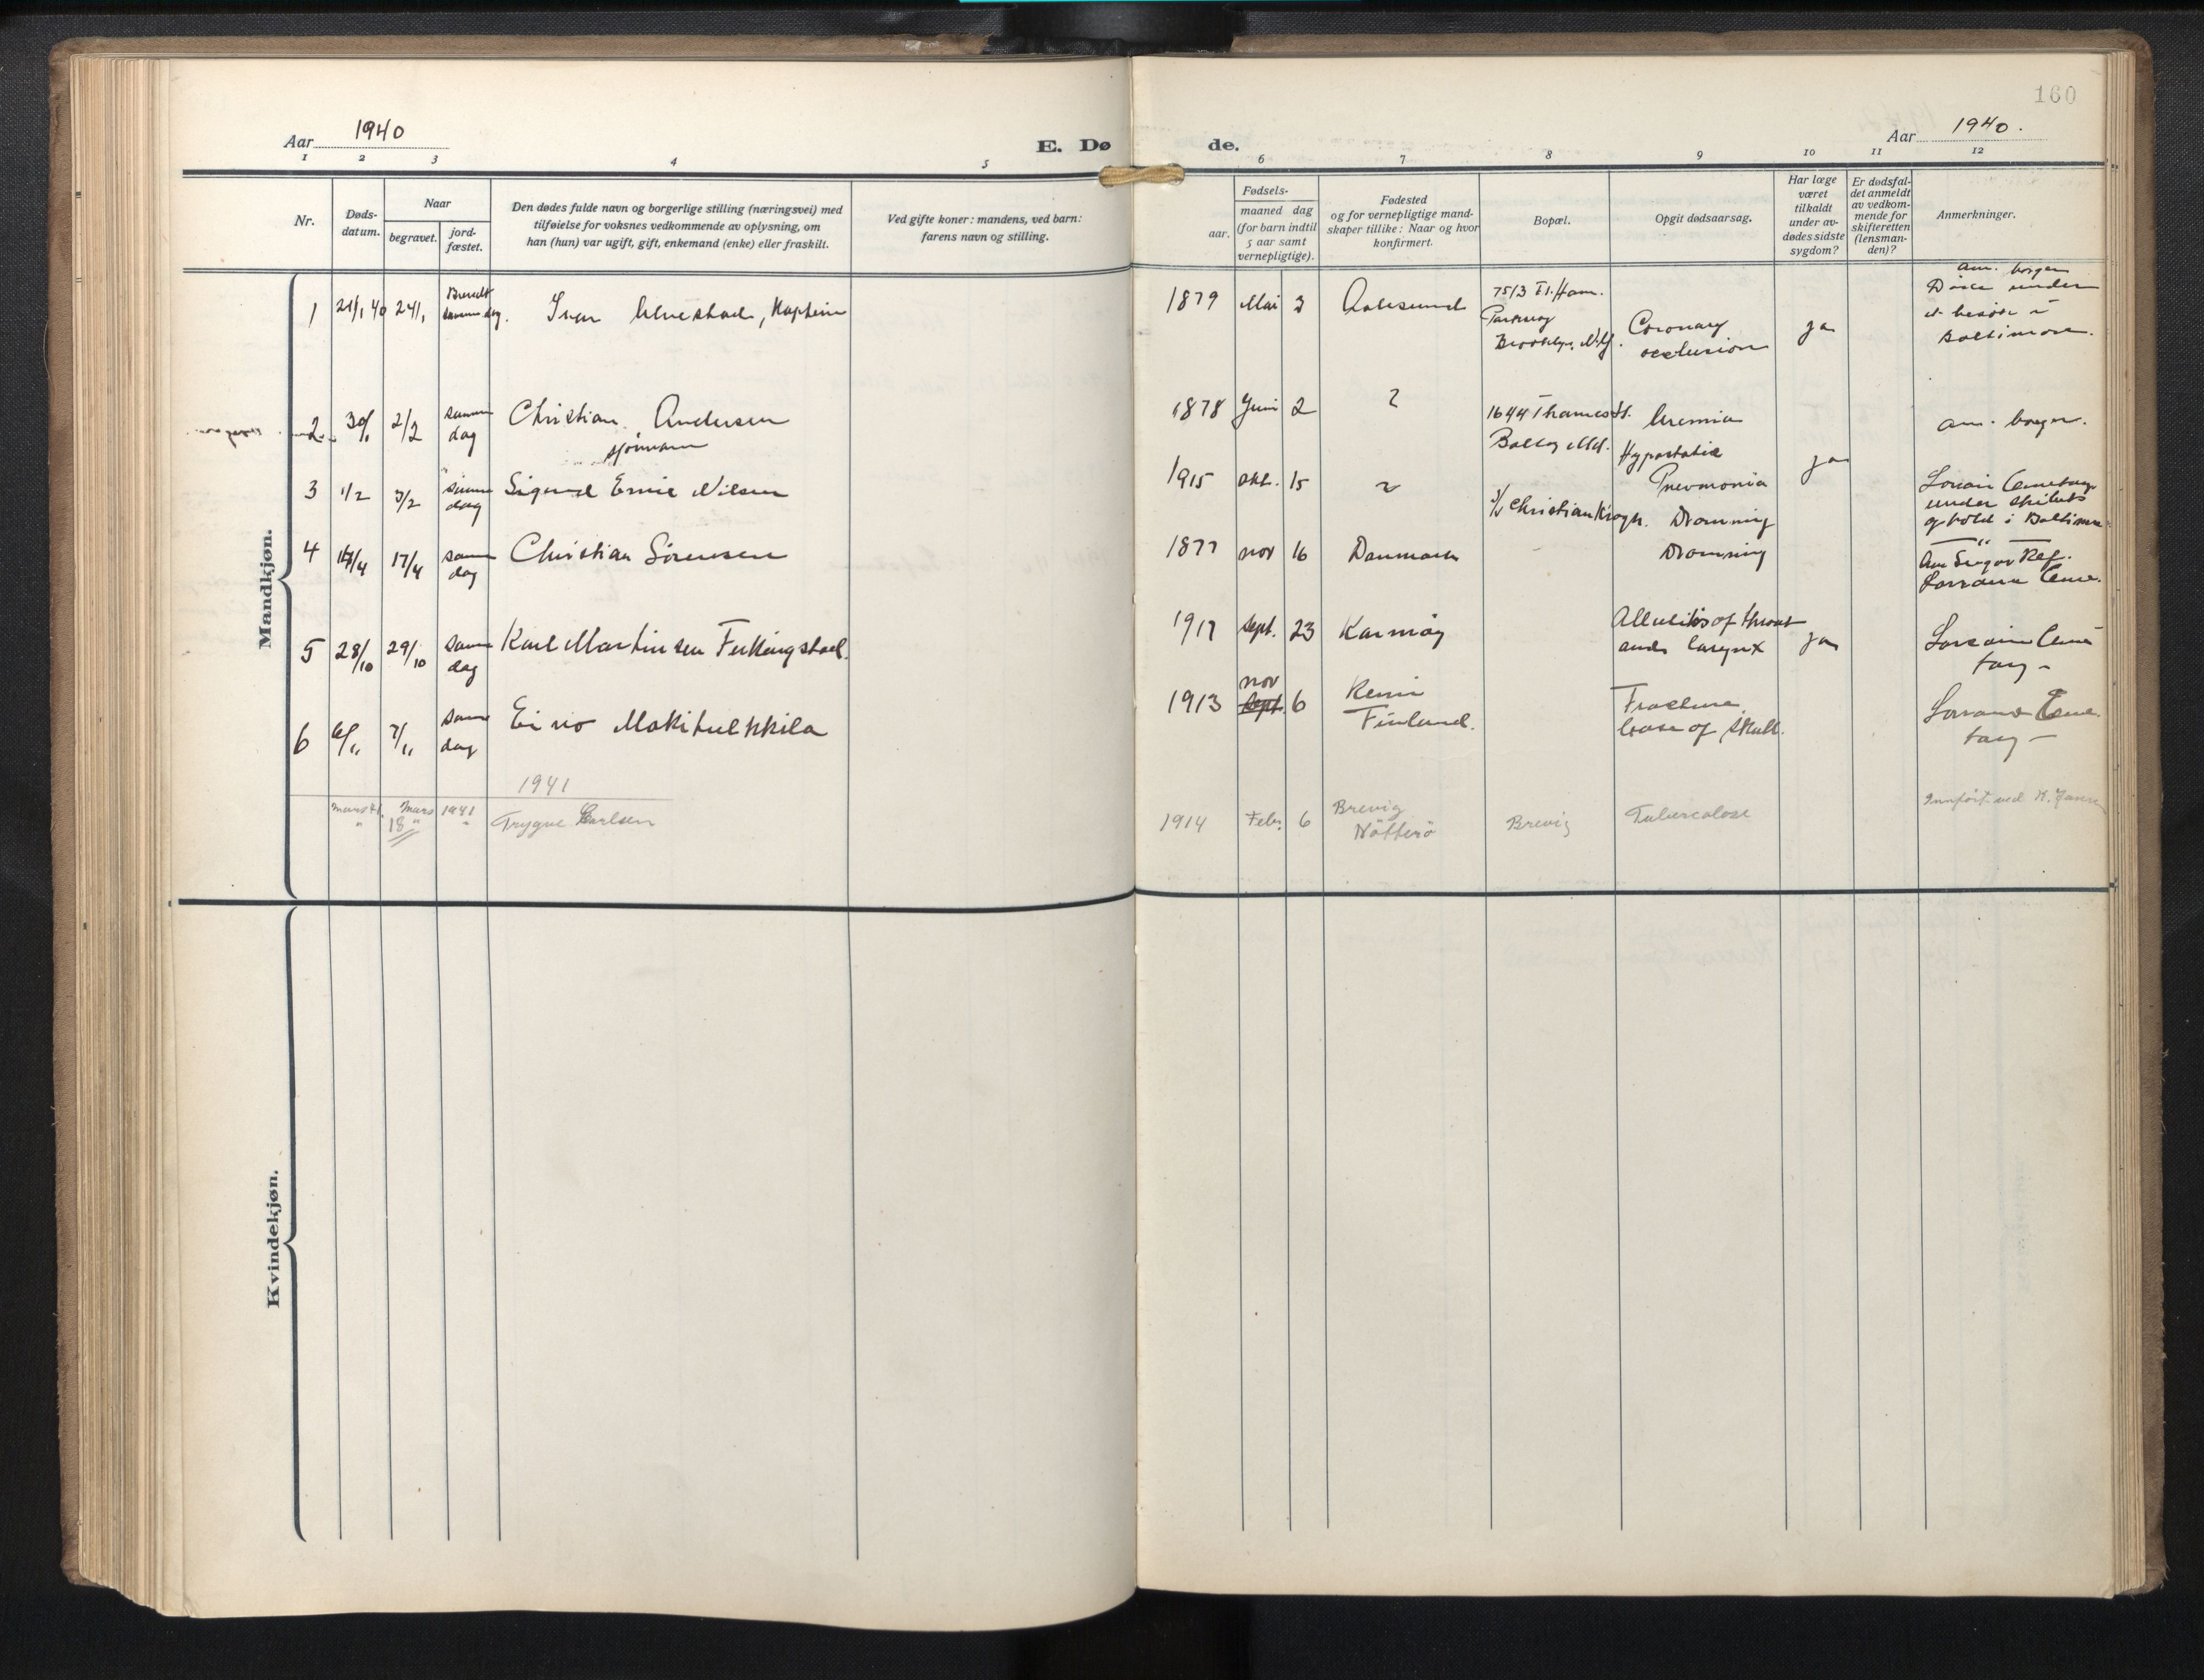 160
Aar 1940
E. Dø
de.
Aar 1940.
1 2 3 4 5 6 7 8 9 10 11 12
Nr.
Døds-
datum.
Naar
begravet.
jord-
fæstet.
Den dødes fulde navn og borgerlige stilling (næringsvei) med
tilføielse for voksnes vedkommende av oplysning, om
han (hun) var ugift, gift, enkemand (enke) eller fraskilt.
Ved gifte koner: mandens, ved barn:
farens navn og stilling.
Fødsels-
aar.
maaned dag
(for barn indtil
5 aar samt
vernepligtige).
Fødested
og for vernepligtige mand-
skaper tillike: Naar og hvor
konfirmert.
Bopæl.
Opgit dødsaarsag.
Har læge
været
tilkaldt
under av-
dødes sidste
sygdom?
Er dødsfal-
det anmeldt
av vedkom-
mende for
skifteretten
(lensman-
den)?
Anmerkninger.
Mandkjøn.
1 21/1 40 24/1 Brendt samme dag. Ivar Ulvestad, Kaptein
1879 Mai 3 Aalesund
7513 Ft. Ham.
Parkway
Brooklyn, N.Y.
Coronary
occlusion
ja
am. borger
Døde under
et besøk i
Baltimore.
2 30/1 2/2 samme dag Christian Andersen
sjømann
1878 Juni 2 ?
1644 Thames St.
Balto, Md.
Uremia
Hypostatic
Pneumonia
ja
am. borger.
3 1/2 3/2 samme dag Sigurd Ernie Nilsen
1915 okt. 15 ?
S/S Christian Krogh.
Drowning
Lorain Cemetary
under skibets
ophold i Baltimore
4 14/4 17/4 samme dag Christian Sörensen
1877 nov 16 Danmark
Drowning
Am Sugar Ref.
Lorraine Ceme.
5 28/10 29/10 samme dag Karl Martinsen Ferkingstad.
1917 sept. 23 Karmöy
Cellulitis of throat
and larynx
ja
Lorraine Ceme
tary -
6 6/11 7/11 samme dag Eino Makitulkkila
1913 nov sept. 6
Kemi
Finland.
Fracture
base of skull.
Lorraine Ceme.
tary -
1941
mars 41. Mars 1941
" 18 " " Trygve Carlsen
1914 Febr. 6
Brevig
Nötterö
Brevig
Tuberculose
Innført ved H. Jansen
Kvindekjøn.